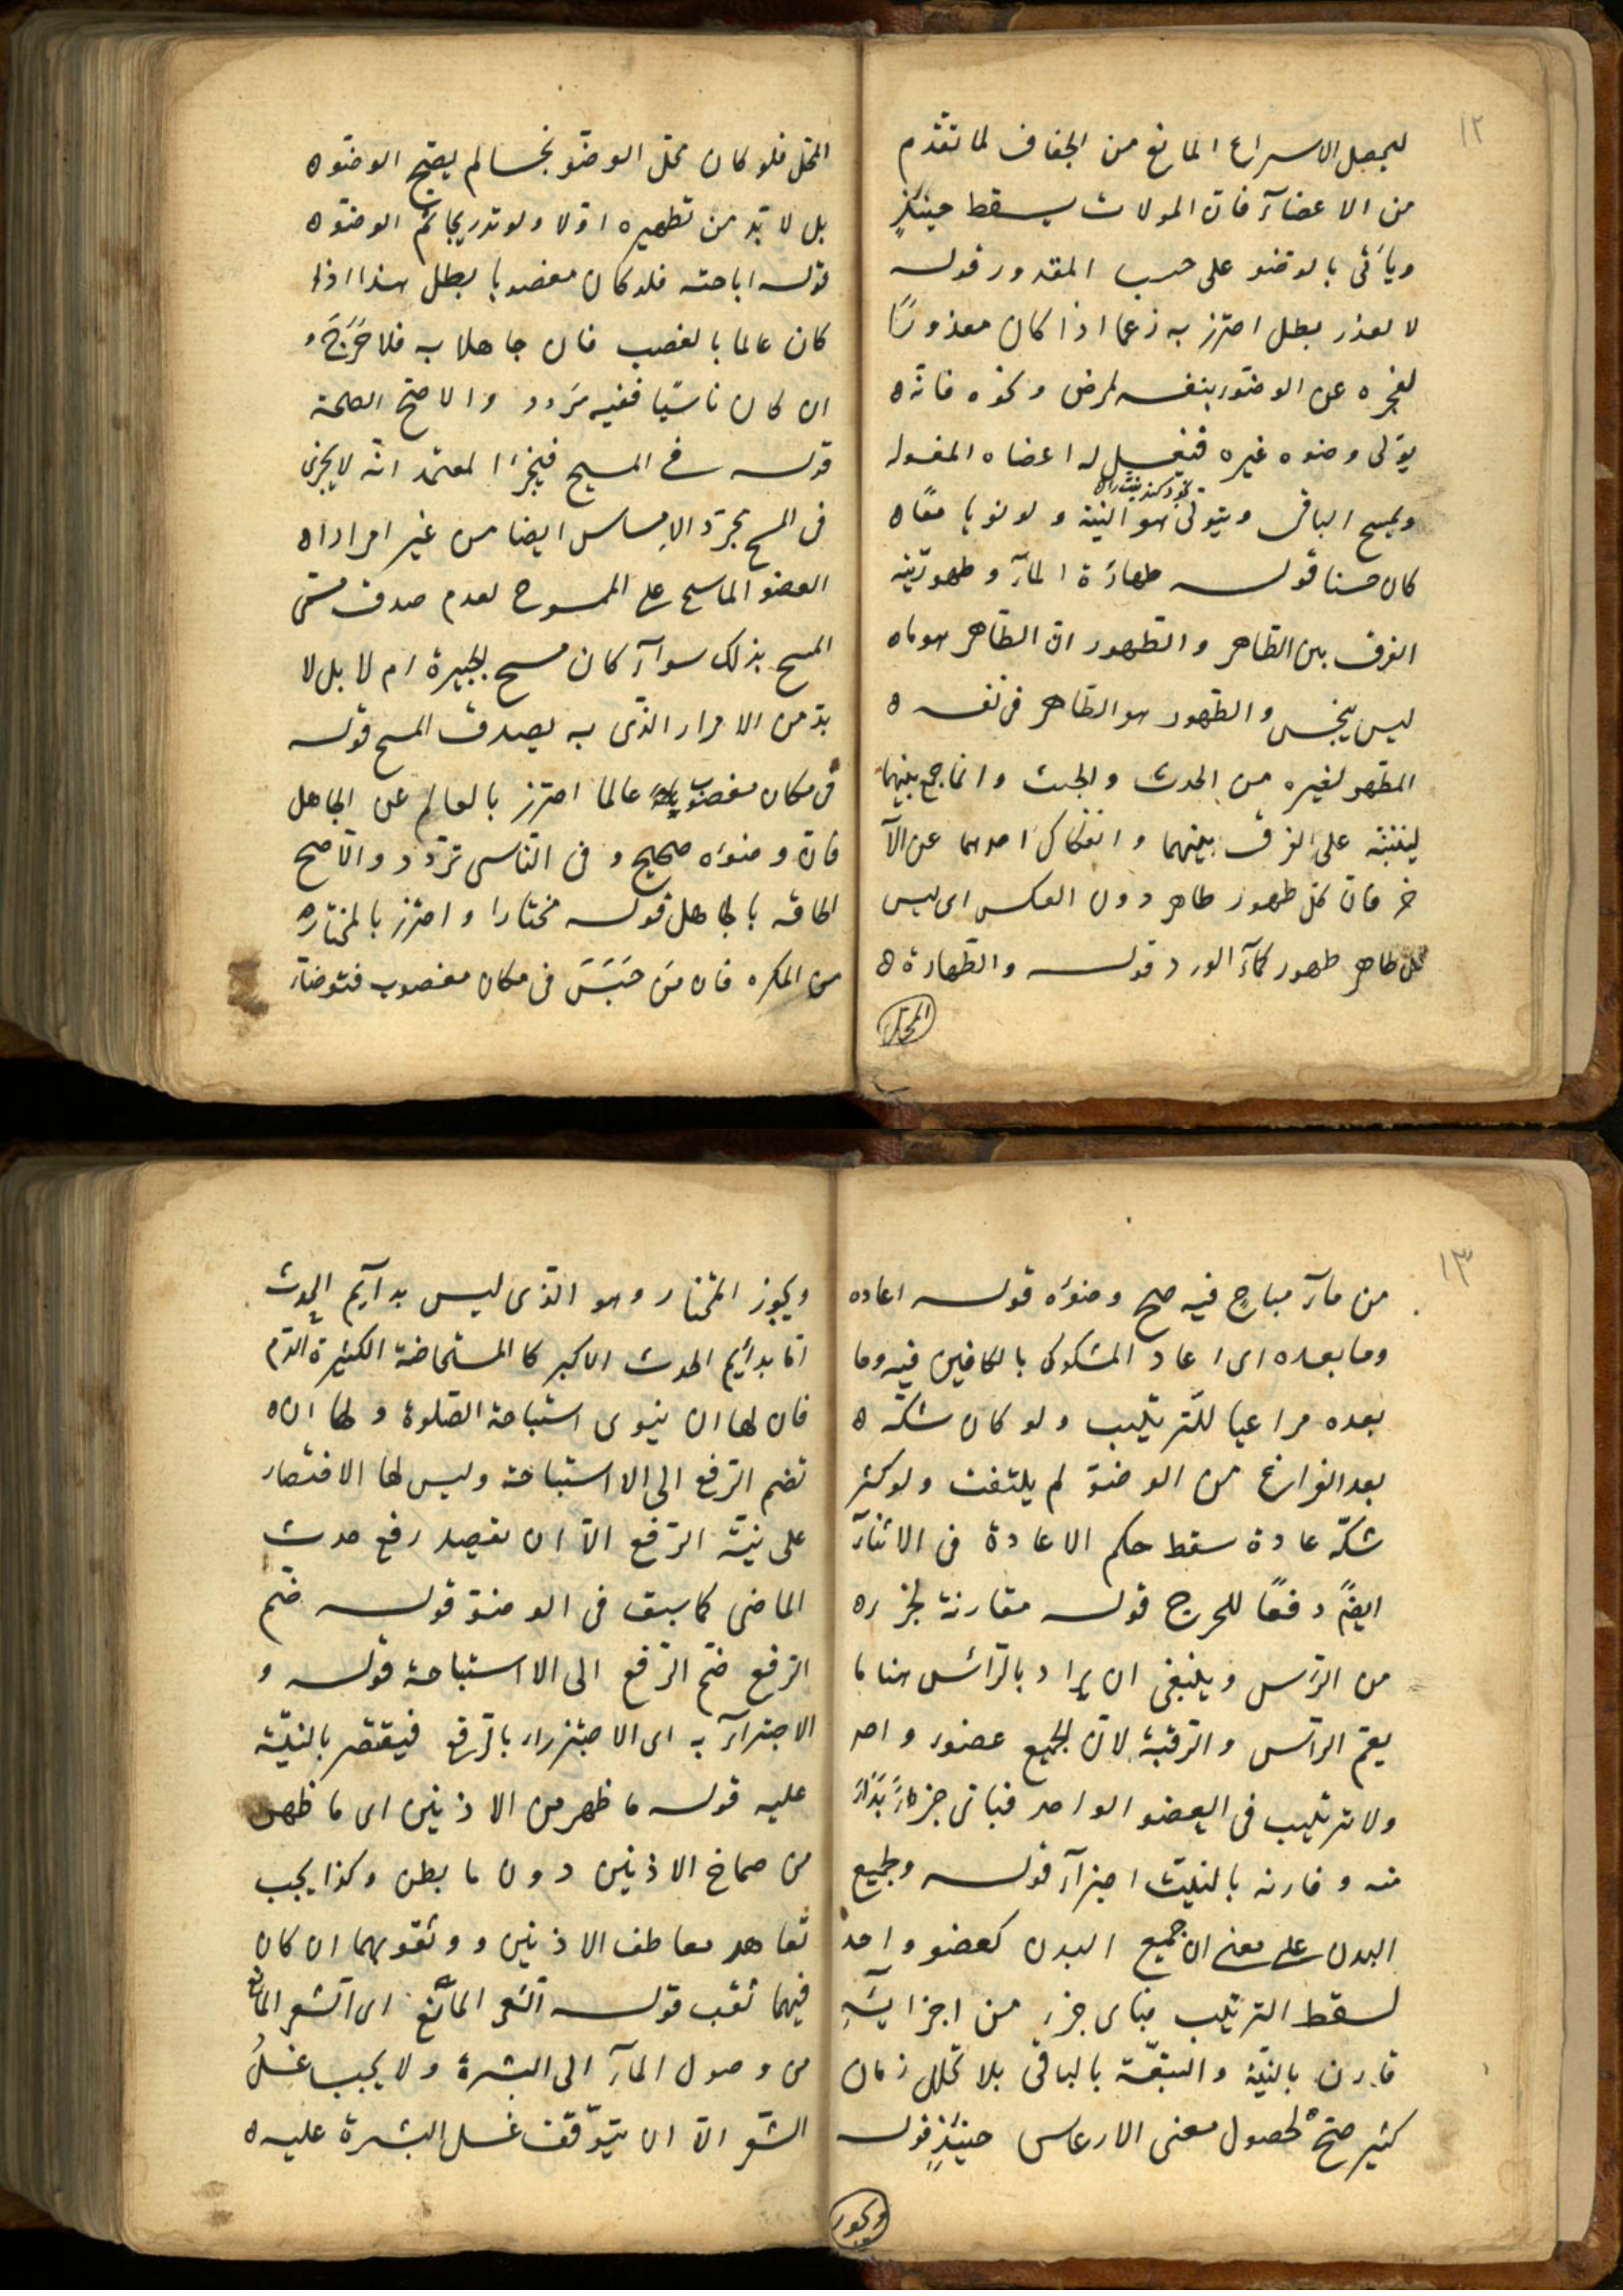 ١٢
ليحصل الاسراع المانع من الجفاف لما تقدم
من الاعضآء فان المولات يسقط حينئذٍ
ويأتى بالوضو على حسب المقدور قوله
لا لعذر بطل احترز به زعما اذا كان معذورًا
لعجزه عن الوضوء بنفسه لمرض ونحوه فانّه
يتولى وضوه غيره فيغسل له اعضاه المغسوله
ويمسح الباقى ويتولى هو النية ولو نويا معًا
كان حسنا قوله طهارَة المآء وطهوريّته
الفرق بين الطّاهر والطّهور انّ الطّاهر هو ما
ليس بنجس والطّهور هو الطّاهر فى نفسه
المطهر لغيره من الحدث والخبث وانما جمع بينهما
لينبّه على الفرق بينهما وانفكاك احدهما عن الآ
خر فان كل طهور طاهر دون العكس اى ليس
كل طاهر طهور كمآء الورد قوله والطّهارة
المحل
المحل فلو كان محل الوضو نجسا لم يصح الوضوء
بل لا بدّ من تطهيره اوّلا ولو تدريجا ثم الوضوء
قوله اباحته فلو كان مغصوبا بطل هذا اذا
كان عالما بالغصب فان جاهلا به فلا حَرَجَ و
ان كان ناسيًا ففيه تردد والاصحّ الصحة
قوله فى المسح فيجزا المعتمد انّه لا يجزى
فى المسح بمجرّد الامساس ايضا من غير امرار
العضو الماسح على الممسوح لعدم صدق مسمّى
المسح بذلك سوآء كان مسح لجبيرة ام لا بل لا
بدّ من الامرار الذّى به يصدق المسح قوله
فى مكان مغصوب عالما احترز بالعالم عن الجاهل
فانّ وضوءه صحيح و فى النّاسى تردّد والاصح
الحاقه بالجاهل قوله مختارا واحترز بالمختار
من المكره فان مَن حَبَسَ فى مكان مغصوب فتوضاء
١٣
من مآء مباحٍ فيه صح وضوءه قوله اعاده
وما بعده اى اعاد المشكوك بالكافين فيه وما
بعده مراعيا للتّرتيب ولو كان شكّه
بعد الفراغ من الوضوّ لم يلتفت ولو كثر
شكّه عادة سقط حكم الاعادة فى الاثنآء
ايضً دفعًا للحرج قوله مقارنة لجزء
من الرّاس وينبغى ان يراد بالرّائس هنا ما
يعّم الرّاس والرّقبة لانّ الجميع عضوء واحد
ولا ترتيب فى العضو الواحد فباى جزء بَدَاءَ
منه وقارنه بالنيّت اجزآء قوله ولجميع
البدن على معنى ان جميع البدن كعضو واحد
لسقط الترتيب فباى جزء من اجزايئه
قارن بالنيّة واتبعّة بالباقى بلا تخلل زمان
كثير صحّ لحصول معنى الارتماس حينئذٍ قوله
ويجوز
ويجوز المختار وهو الذّى ليس بدآيم الحدث
امّا بدائم الحدث الاكبر كالمستحاضة الكثيرة الدّم
فان لها ان ينوى استباحة الصّلوة ولها ان
تضم الرّفع الى الااستباحة وليس لها الاقتصار
على نيّة الرّفع الاّ ان تقصد رفع حدث
الماضى كما سبق فى الوضوّ قوله ضم
الرفع ضمّ الرّفع الى الااستباحة قوله و
الاجتزآء به اى الاجتزاء بالرّفع فيقتصر بالنيّة
عليه قوله ما ظهر من الاذنين اى ما ظهر
من صماخ الاذنين دون ما بطن وكذا يجب
تعاهد معاطف الاذنين و وثقوبهما ان كان
فيهما ثقب قوله الشعر المانع اى الشعر المانع
من وصول المآء الى البشرة ولا يجب غسلُ
الشّعر الاّ ان يتوّقف غسل البشرة عليه